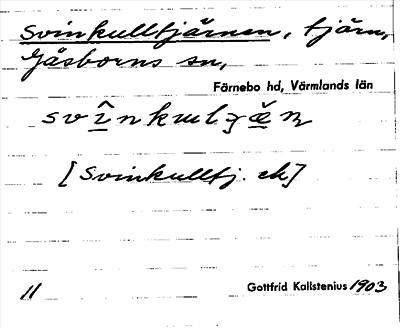 Svinkulltjärnen, tjärn,
Gåsborns sn,
Färnebo hd, Värmlands län
[Svinkulltj. ek]
11
Gottfrid Kallstenius 1903